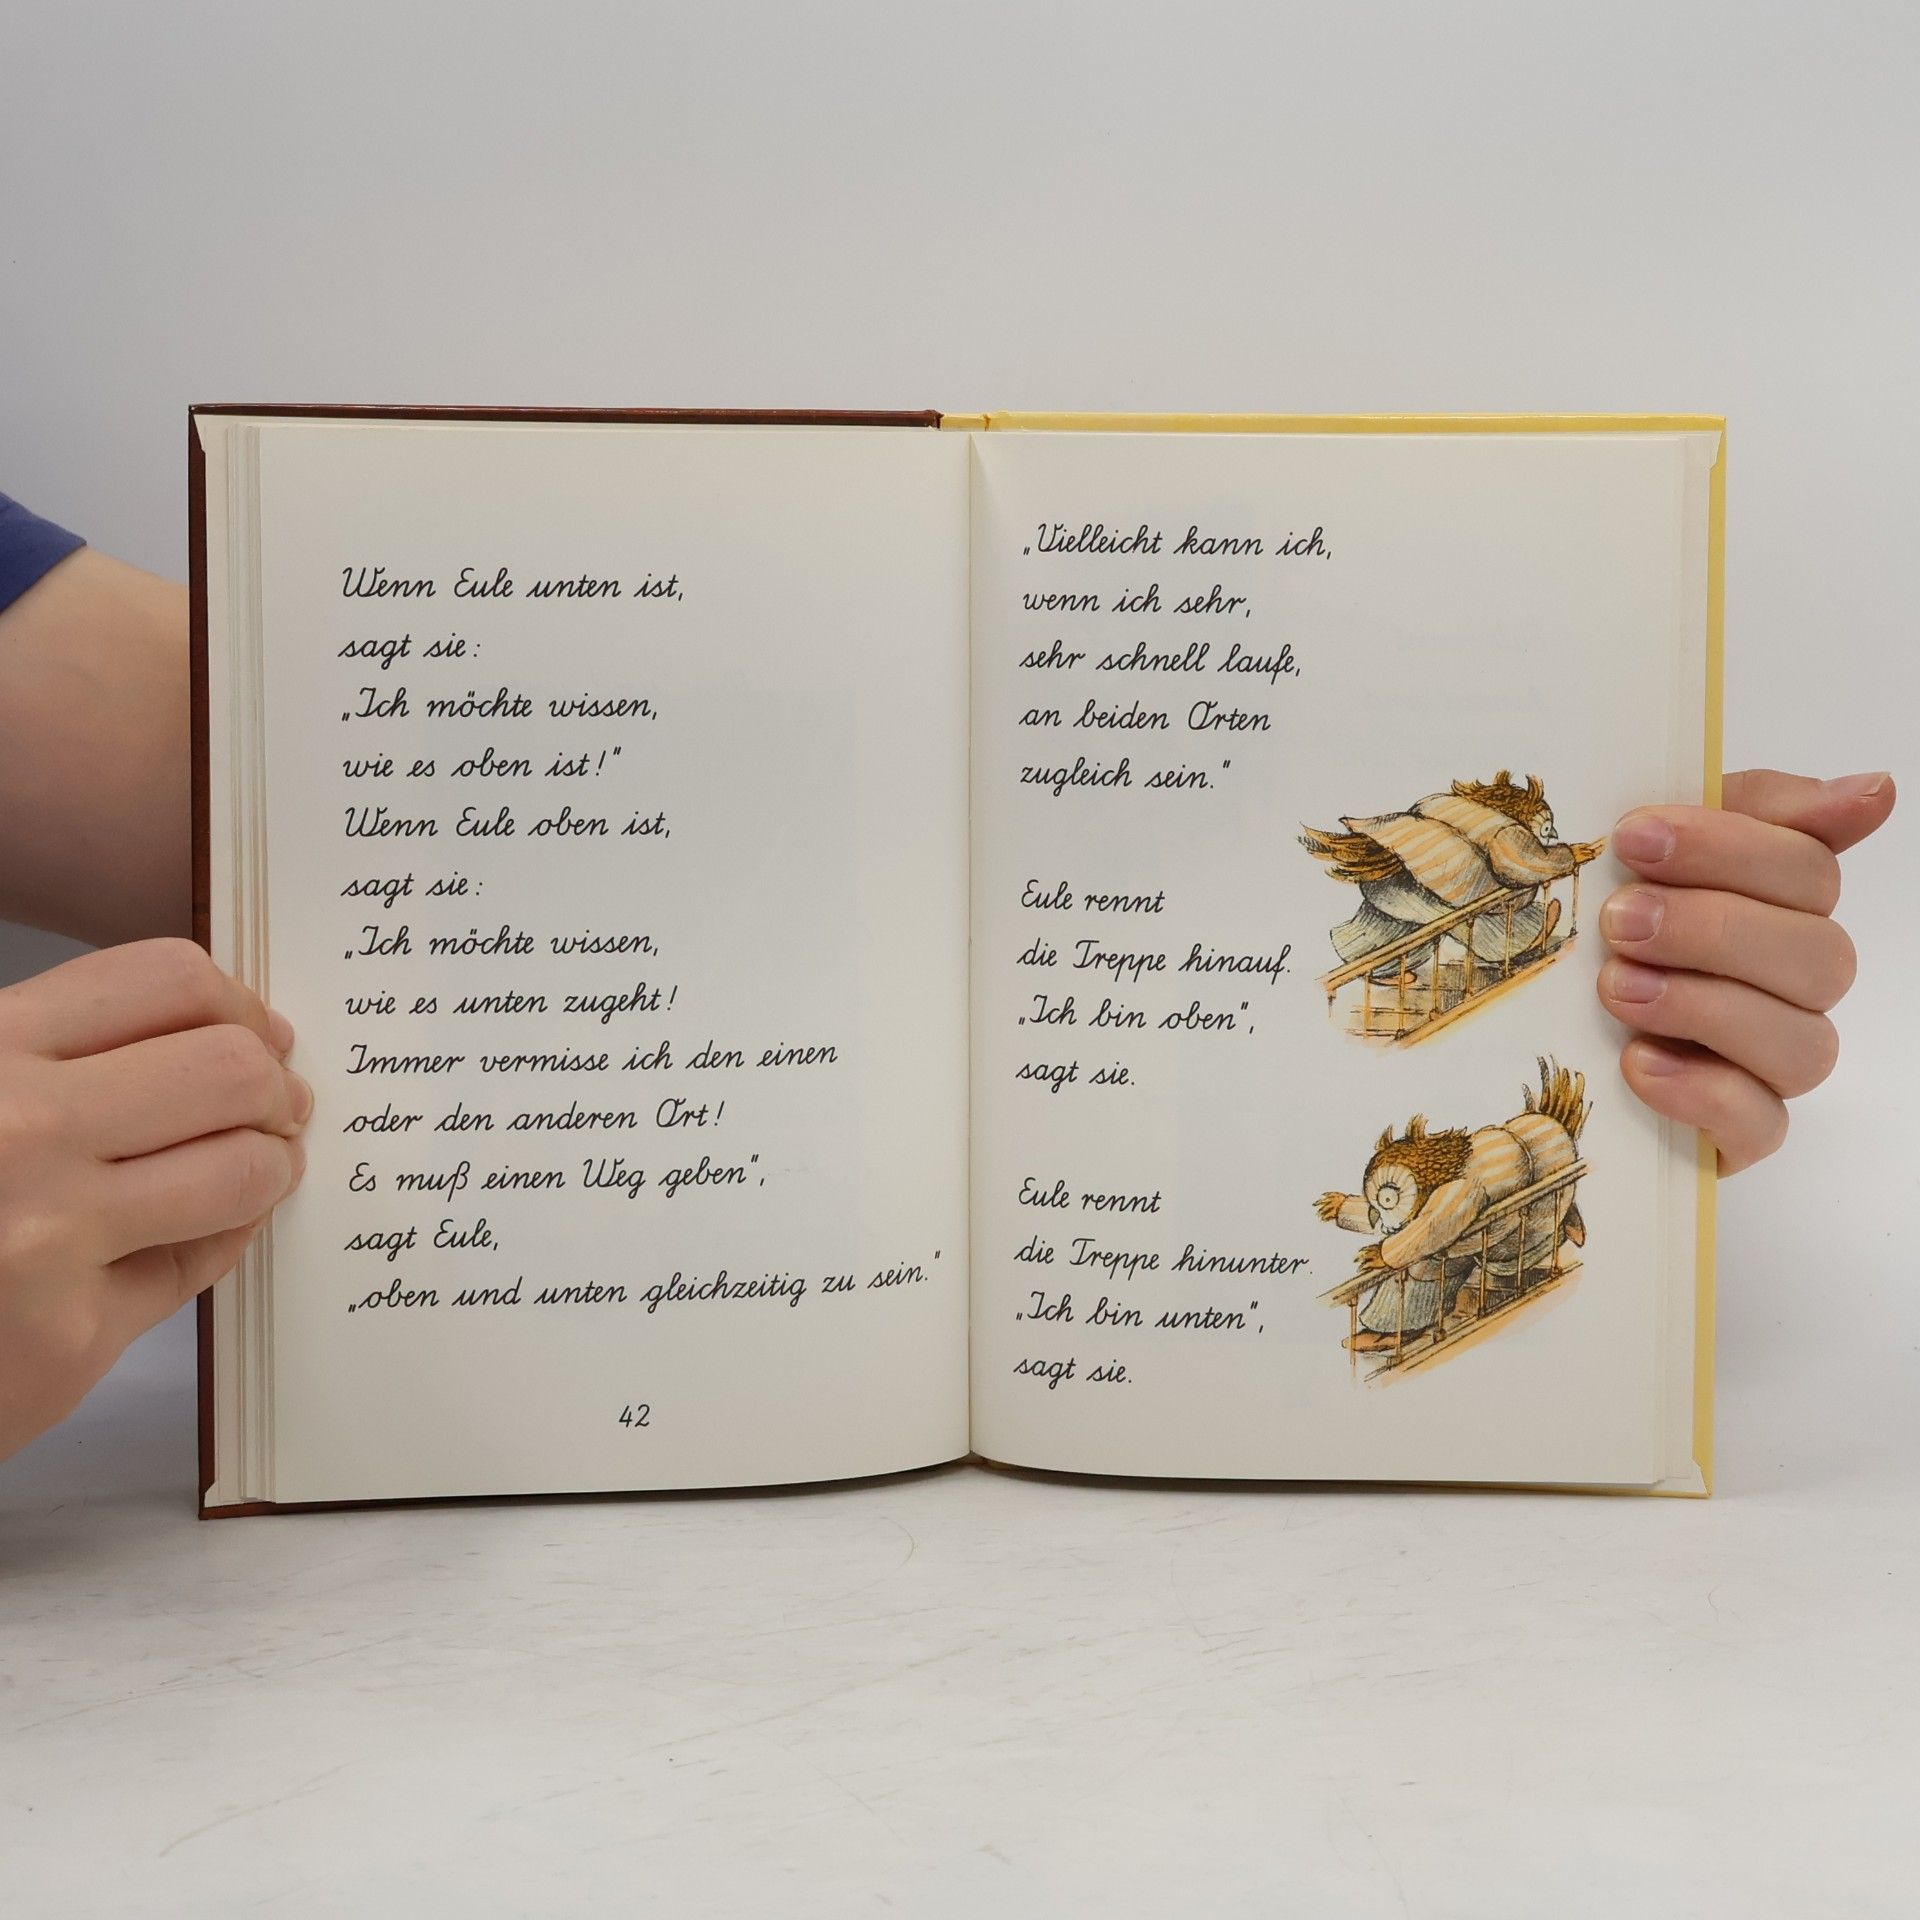 Wenn Eule unten ist,
sagt sie:
„Ich möchte wissen,
wie es oben ist!"
Wenn Eule oben ist,
sagt sie:
„Ich möchte wissen,
wie es unten zugeht!
Immer vermisse ich den einen
oder den anderen Ort!
Es muß einen Weg geben",
sagt Eule,
„oben und unten gleichzeitig zu sein."
42
„Vielleicht kann ich,
wenn ich sehr,
sehr schnell laufe,
an beiden Orten
zugleich sein."
Eule rennt
die Treppe hinauf.
„Ich bin oben",
sagt sie.
Eule rennt
die Treppe hinunter.
„Ich bin unten",
sagt sie.